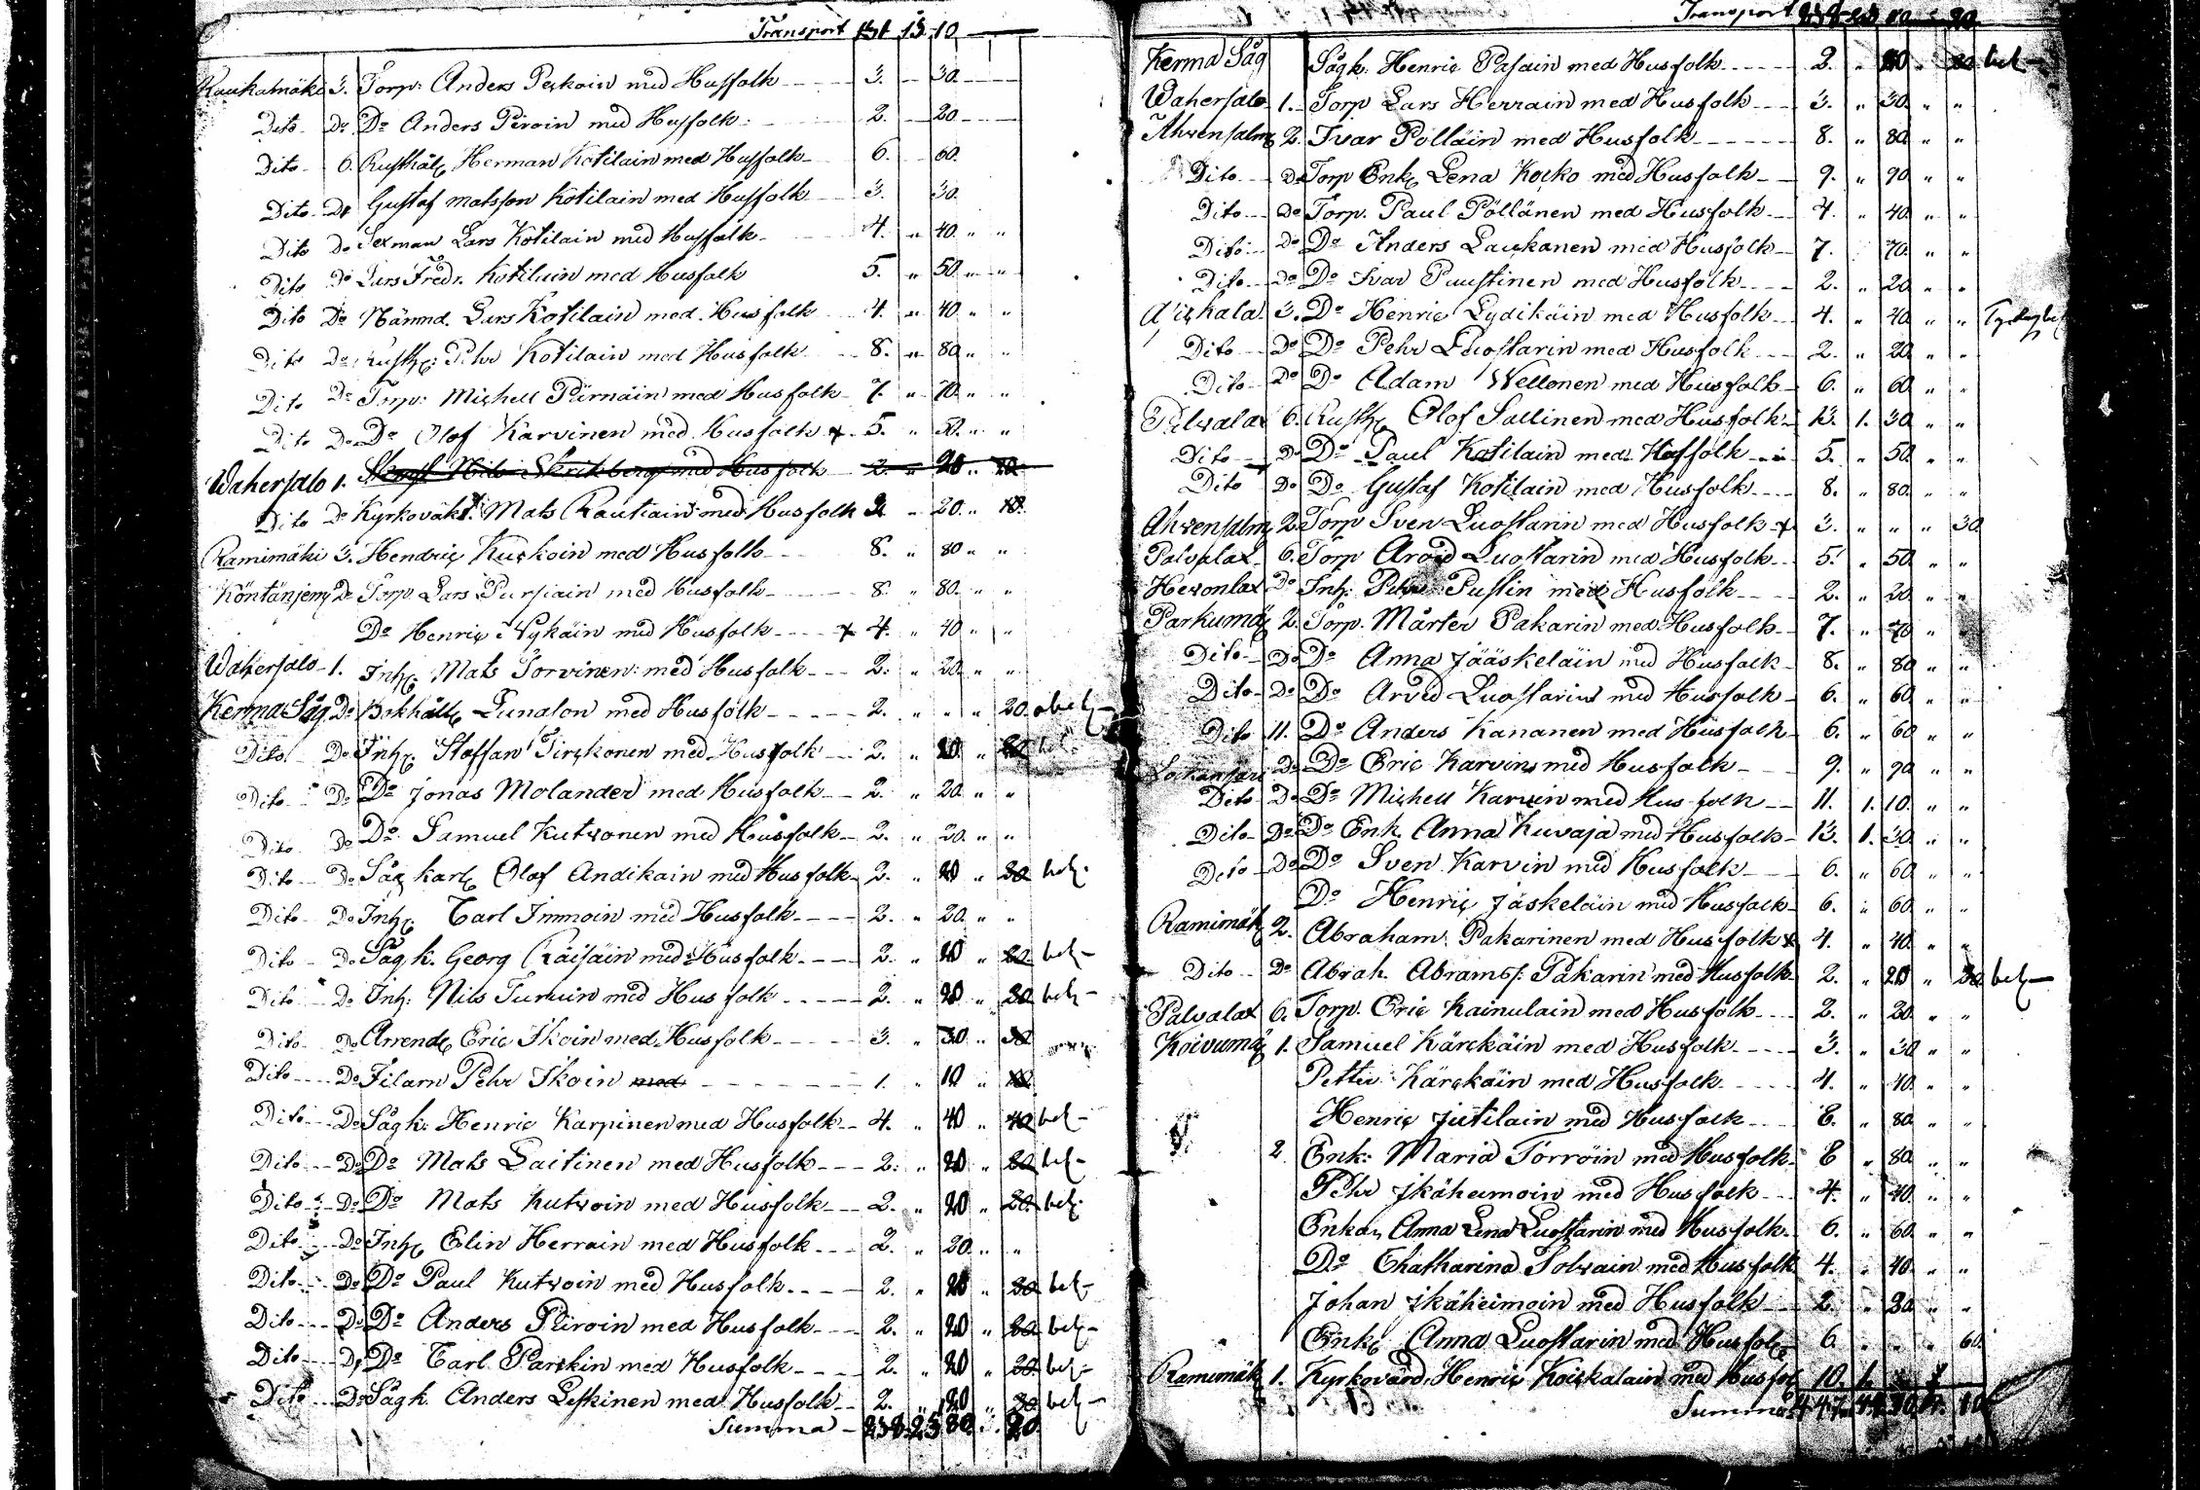 Transport 151 15 10
Raukalmäki 3. Torp: Anders Peskoin med Husfolk 3. 30.
Dito Do Do Anders Piroin med Husfolk 2. 20
Dito 6. Rusthåll Herman Kotilain med Husfolk 6. 60
Dito Do Gustaf Matsson Kotilain med Husfolk 3. 30.
Dito Do Sexman Lars Kotilain med Husfolk 4. " 40. " "
Dito Do Lars Fredr. Kotilain med Husfolk 5. " 50. " "
Dito Do Nämnd. Lars Kotilain med Husfolk 4. " 40. " "
Dito Do Rusth: Pehr Kotilain med Husfolk 8. " 80. " "
Dito Do Torp: Michell Pürnäin med Husfolk 7. " 70. " "
Dito Do Do Olof Karvinen med Husfolk x 5. " 50. " "
Wahersalo 1. Nils Skrikberg med Husfolk 2. " 20 " 20.
Dito Do Kyrkovakt. Mats Rautiain med Husfolk 2. " 20. "
Ramimäki 3. Hendric Kuskoin med Husfolk 8. " 80 " "
Köntänjemy Do Torp. Lars Purjain med Husfolk 8. " 80. " "
Do Henric Nykäin med Husfolk x 4. " 40 " "
Wahersalo 1. Inh. Mats Torvinen med Husfolk 2. " 20. " "
Kerma Såg Do Bokhåll Lunason med Husfolk 2. " " " 20. obet
Dito Do Inh. Staffan Tirskonen med Husfolk 2. " 20. " 20 bet
Dito Do Do Jonas Molander med Husfolk 2. " 20. " "
Dito Do Do Samuel Kutvonen med Husfolk 2. " 20. " "
Dito Do Såg karl Olof Andikain med Husfolk 2. " 20 " 20 bet.
Dito Do Inh. Carl Immoin med Husfolk 2. " 20. " "
Dito Do Såg k. Georg Räisäin med Husfolk 2. " 20 " 20 bet
Dito Do Inh: Nils Turuin med Husfolk 2. " 20 " 20 bet
Dito Do Arrend Eric Ikoin med Husfolk 3. " 30 " 30
Dito Do Filarn Pehr Ikoin med 1. " 10 " 10
Dito Do Sågk. Henric Karpinen med Husfolk 4. " 40 " 40 bet
Dito Do Do Mats Laitinen med Husfolk 2. " 20 " 20 bet
Dito Do Do Mats Kutvoin med Husfolk 2. " 20 " 20 bet.
Dito Do Inh Elin Herrain med Husfolk 2. " 20. " "
Dito Do Do Paul Kutvoin med Husfolk 2. " 20 " 20 bet
Dito Do Do Anders Piiroin med Husfolk 2. " 20 " 20 bet
Dito Do Do Carl Parskin med Husfolk 2. " 20 " 20 bet
Dito Do Sågk. Anders Leskinen med Husfolk 2. " 20 " 20 bet
Summa 238. 23 80. " 20.
Transport 238 23 80 " 20
Kerma Såg Sågk: Henric Pasain med Husfolk 2. " 20 " 20 bet
Wahersalo 1. Torp Lars Herrain med Husfolk 3. " 30. " "
Ahvensalmi 2. Ivar Pölläin med Husfolk 8. " 80. " "
Dito Do Torp Enk Lena Kocko med Husfolk 9. " 90 " "
Dito Do Torp. Paul Pöllänen med Husfolk 4. " 40. " "
Dito Do Do Anders Laukanen med Husfolk 7. 70. " "
Dito Do Do Ivar Puustinen med Husfolk 2. " 20 " "
3. Do Henric Lydikäin med Husfolk 4. " 40 " "
Dito Do Do Pehr Luostarin med Husfolk 2. " 20 " "
Dito Do Do Adam Wellonen med Husfolk 6. " 60. " "
Palvalax 6. Rusth Olof Sallinen med Husfolk 13. 1. 30 " "
Dito Do Do Paul Kotilain med Husfolk 5. " 50. " "
Dito Do Do Gustaf Kotilain med Husfolk 8. " 80. " "
Ahvensalmi 2. Torp Sven Luostarin med Husfolk x 3. " " " 30.
Palvalax 6. Torp Arvid Luostarin med Husfolk 5. " 50. " "
Hevonlax Do Inh: Pehr Pustin med Husfolk 2. " 20. " "
Parkumäki 2. Torp. Mårten Pakarin med Husfolk 7. " 70 "
Dito Do Do Anna Jääskeläin med Husfolk 8. " 80 " "
Dito Do Do Arved Luostarin med Husfolk 6. " 60. " "
Dito 11. Do Anders Kananen med Husfolk 6. " 60 " "
Do Do Eric Karvin med Husfolk 9. " 90 " "
Dito Do Do Michell Karvin med Husfolk 11. 1. 10. " "
Dito Do Do Enk Anna Kuvaja med Husfolk 13. 1. 30. " "
Dito Do Do Sven Karvin med Husfolk 6. " 60. " "
Do Henric Jäskeläin med Husfolk 6. " 60 " "
Ramimäki 2. Abraham Pakarinen med Husfolk x 4. " 40. " "
Dito Do Abrah. Abramss: Pakarin med Husfolk 2. " 20 " 20 bet
Palvalax 6. Torp. Eric Kainulain med Husfolk 2. " 20. " "
Koivumäki 1. Samuel Kärckäin med Husfolk 3. " 30 " "
Petter Kärckäin med Husfolk 4. " 40. " "
Henric Jutilain med Husfolk 8. " 80. " "
2 Enk: Maria Torröin med Husfolk 8 " 80. " "
Pehr Ikäheimoin med Husfolk 4. " 40. " "
Enkan Anna Lena Luostarin med Husfolk 6. " 60. " "
Do Chatharina Solvain med Husfolk 4. " 40. " "
Johan Ikäheimoin med Husfolk 2. " 20. " "
Enk Anna Luostarin med Husfolk 6. " " " 60.
Ramimäki 1. Kyrkovärd Henric Koickalain med Husfol 10. 1.
Summa 447. 10